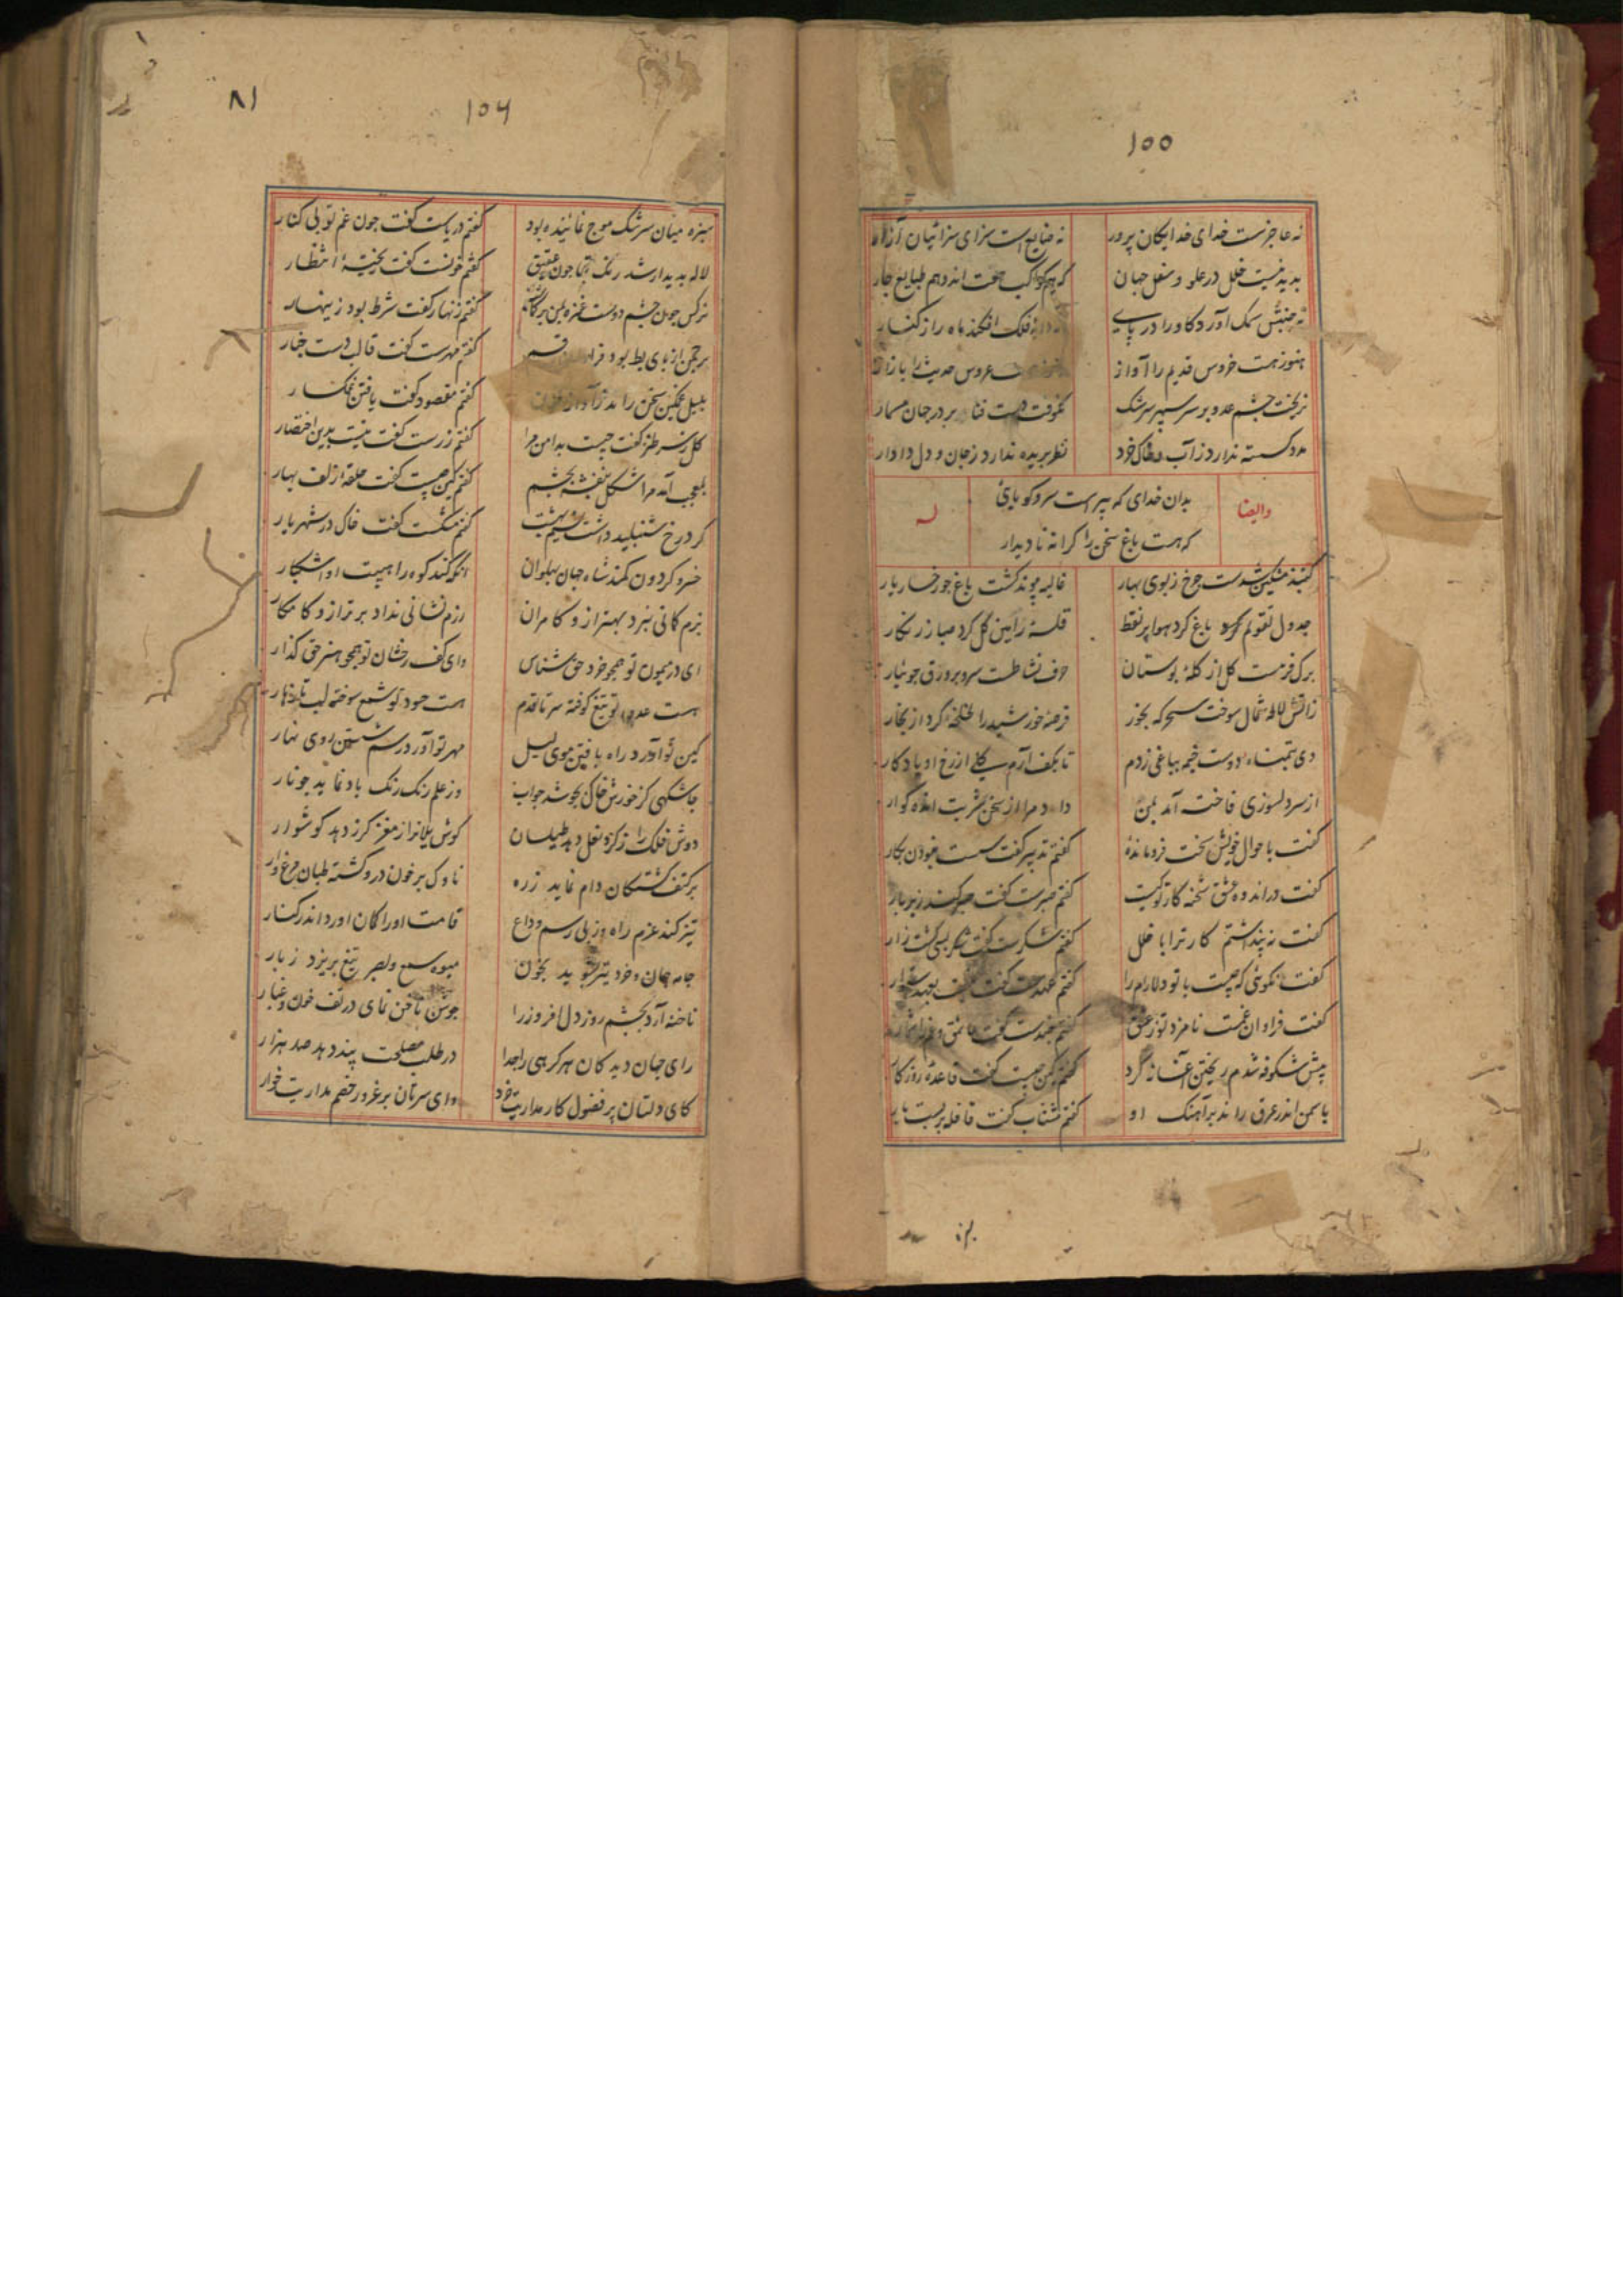 ۱۵۵
نه عاجزست خدای خدایکان پرور نه ضایع است سزای سزائیان آزار
بدید نیست خلل در علو و سفل جهان کواکب هفت اند و هم طبایع چار
نه جنبش سمک آورد کاو را در پای فلک افکند ماه را ز کنار
هنوز هست خروس قدیم را آواز عروس حدیث را بازار
نریخت چشم عدو بر سر سپهر سرشک نکوفت دست فنا بر در جهان مسمار
مدد کسسته ندارد ز آب و خاک خرد نظر بریده ندارد ز جان و دل دادار
وایضا
بدان خدای که پیراست سرو کویائی
که هست باغ سخن را کرانه نادیدار
له
کنبد مشکین شدست چرخ ز بوی بهار غالیه پیوند کشت باغ چو رخسار یار
جدول تقویم باغ کرد هوا پر نقط کل کرد صبا زرنکار
برک فرست کل از کلهٔ بوستان حرف نشاطست سرو بر ورق جوئبار
زاتش لاله شمال سوخت سحرکه بخور قرصهٔ خورشید را لخلخه کرد از بخار
دی بتمناء دوست خیمه بباغی زدم تا بکف آرم یکی از رخ او یادکار
از سر دلسوزی فاخت آمد بمن داد مرا از سخن شربت اندهکوار
کفت با حوال خویش سخت فروماندهٔ کفتم تدبیر کفت سست نبودن بکار
کفت در اندوه عشق شحنهٔ کار تو کیست کفتم صبرست کفت صبر کند زیر بار
کفت نه پنداشتم کار ترا با خلل کفتم شکرست کفت شکر بسی کشت زار
کفت نکوئی که چیست با تو دلارام را کفتم عهدست کفت
کفت فراوان غمست نامزد تو ز عشق کفتم کفت عاشق و
پیش شکوفه شدم ریختن آغاز کرد کفتم کین چیست کفت قاعدهٔ روزکار
یاسمن اندر عرق راند بر آهنک او کفتم مشتاب کفت قافله بر بست بار
۱۵۶
۸۱
سبزه میان سرشک موج نمائنده بود کفتم دریاست کفت چون غم تو بی کنار
لاله پدیدار شد رنک چون عقیق کفتم خونست کفت انتظار
نرکس چون چشم دوست غمزه بمن بر کماشت کفتم زنهار کفت شرط بود زینهار
بر چمن از پای بط بود کفتم مهرست کفت قالب دست چنار
بلبل غمکین سخن راند کفتم مقصود کفت یافتن غمکسار
کل ز سر طنز کفت چیست بدامن ترا کفتم زرست کفت نیست بدین اختصار
بلعجب آمد مرا شکل بنفشه بچشم کفتم کین چیست کفت حلقهٔ زلف بهار
کرد رخ شنبلید داشت نسیم بهشت کفتم مشکست کفت خاک در شهریار
خسرو کردون کمند شاه جهان پهلوان آنکه کند کوه را هیبت او آشکار
بزم کمانی نبرد بهتر از و کامران رزم نشانی نداد برتر از و کامکار
ای در میمون تو همچو خرد حق شناس وای کف رخشان تو همچو هنر حق کذار
هست عدوی تو تیغ کوفته سر تا قدم هست حسود تو شمع سوخته لب
کین تو آورد راه بافتن موی لیل مهر تو آورد رسم شستن روی نهار
چاشکهی کز خورش خاک بجوشد جواب وز علم رنک رنک باد نماید چو نار
دوش فلک را ز کرد نعل دهد طیلسان کوش یلانرا ز مغز کرز دهد کوشوار
برکتف کشتکان دام نماید زره ناوک پر خون درو کشته طبان مرغ وار
تیز کند عزم راه وز پی رسم وداع قامت او را کمان آورد اندر کنار
جامهٔ جان و خرد تیر بشوید بخون میوهٔ سمع و بصر تیغ بریزد ز بار
ناخنه آرد بچشم روز دل افروز را جوشن ناخن نمای در تف خون و غبار
رای جهان دیدکان هر کرهی را جدا در طلب مصلحت پند دهد صد هزار
کای دلتان پر فضول کار مدارید خرد وای سرتان پر غرور خصم مدارید خوار